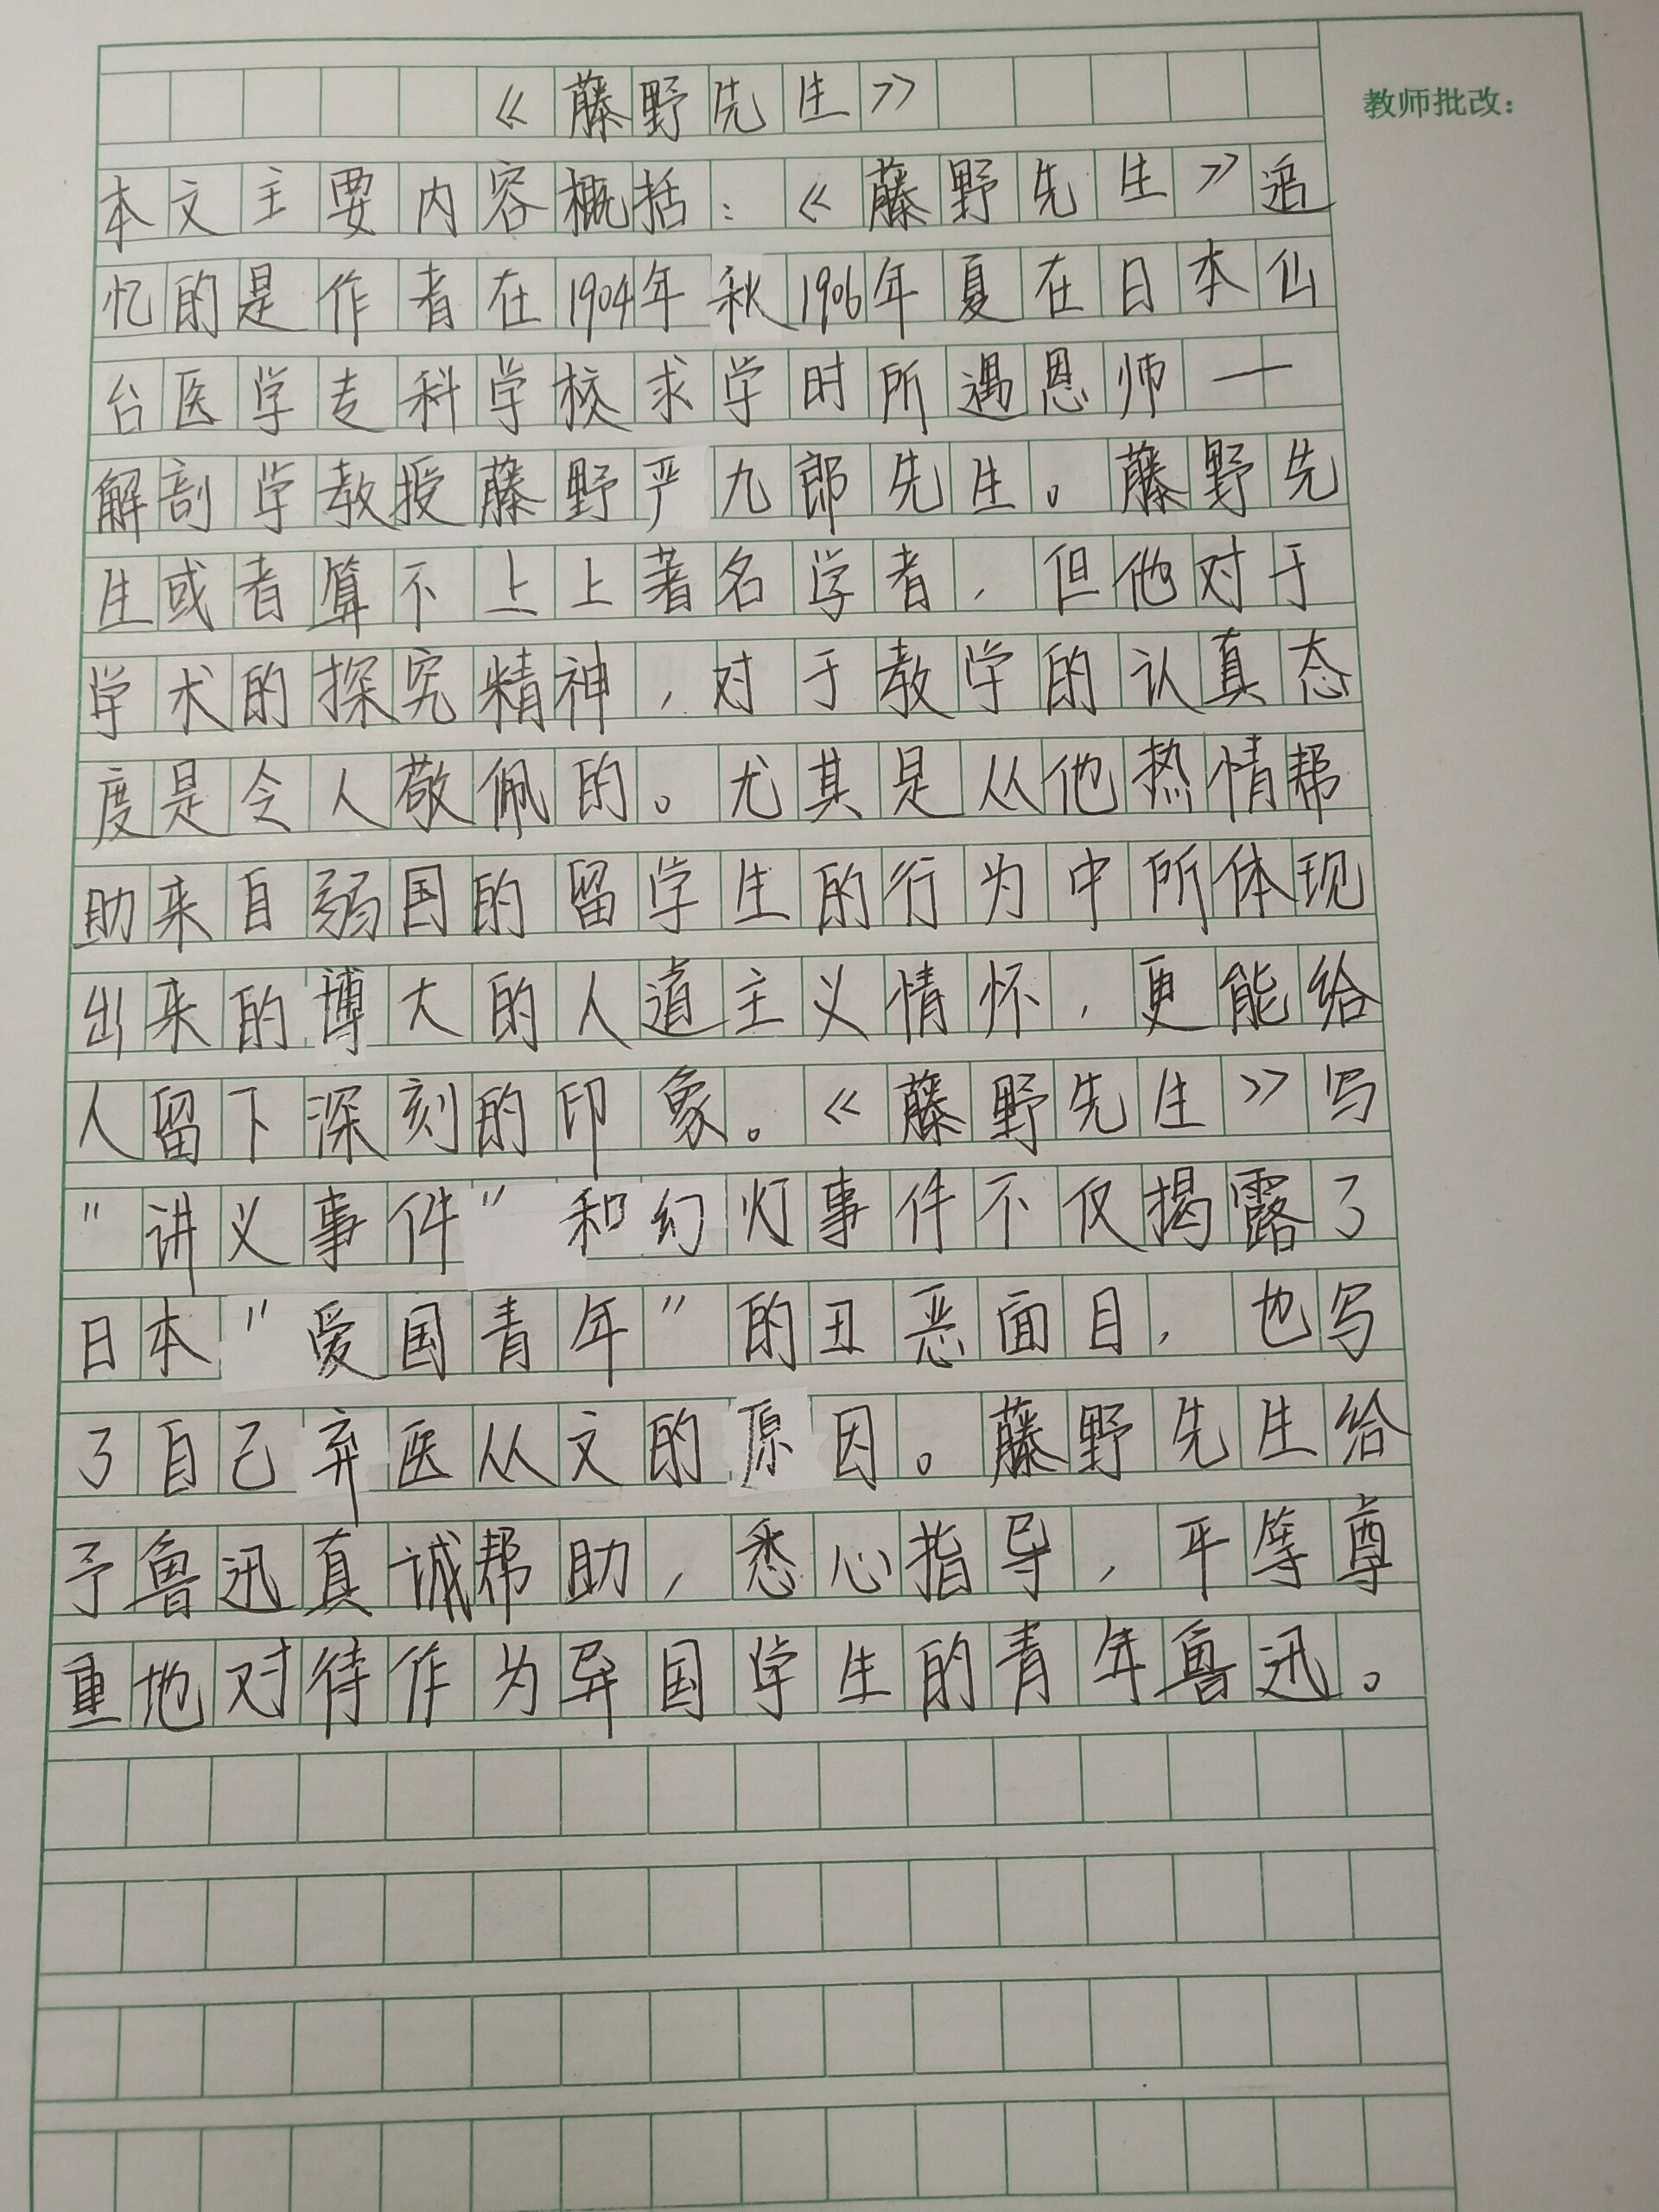 《藤野先生》
教师批改：
本文主要内容概括：《藤野先生》追
忆的是作者在1904年秋1906年夏在日本仙
台医学专科学校求学时所遇恩师——
解剖学教授藤野严九郎先生。藤野先
生或者算不上上著名学者，但他对于
学术的探究精神，对于教学的认真态
度是令人敬佩的。尤其是从他热情帮
助来自弱国的留学生的行为中所体现
出来的博大的人道主义情怀，更能给
人留下深刻的印象。《藤野先生》写
"讲义事件"和幻灯事件不仅揭露了
日本"爱国青年"的丑恶面目，也写
了自己弃医从文的原因。藤野先生给
予鲁迅真诚帮助，悉心指导，平等尊
重地对待作为异国学生的青年鲁迅。